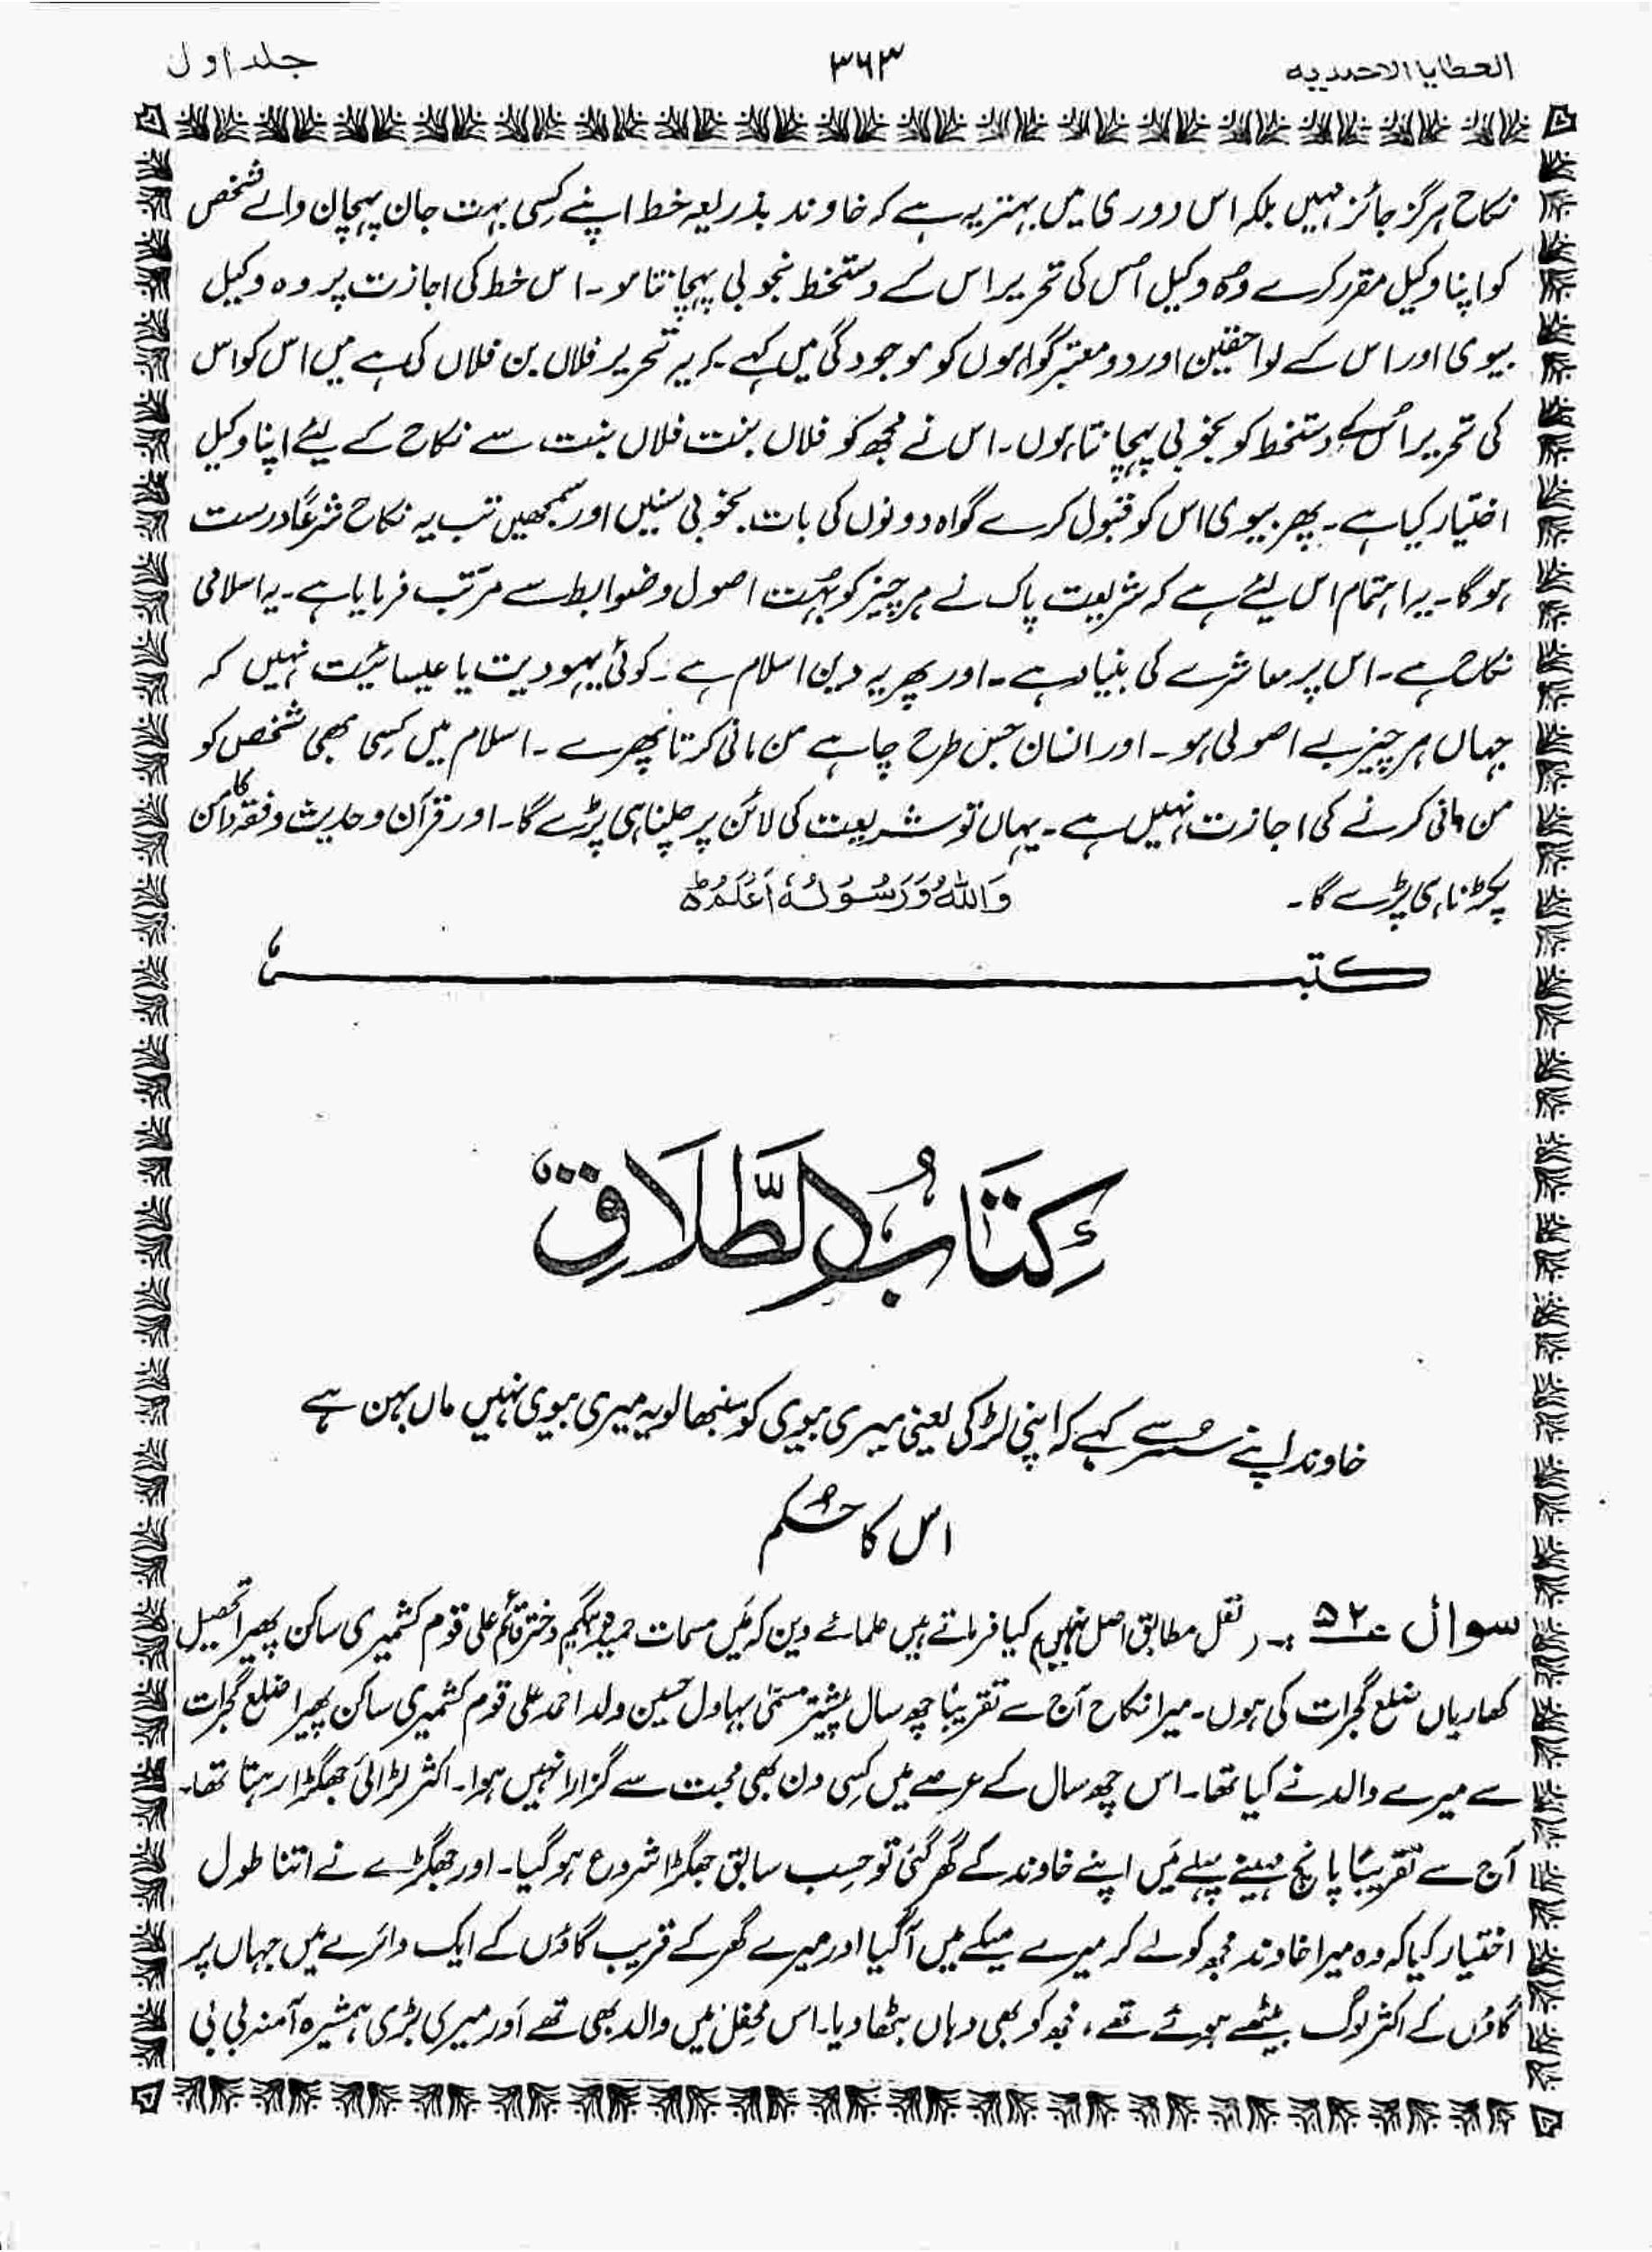 العطایا الاحمدیہ
۳۶۳
جلد اول
نکاح ہرگز جائز نہیں بلکہ اس دوری میں بہتر یہ ہے کہ خاوند بذریعہ خط اپنے کسی بہت جان پہچان والے شخص
کو اپنا وکیل مقرر کرے وہ وکیل اس کی تحریر اس کے دستخط بخوبی پہچانتا ہو۔ اس خط کی اجازت پر وہ وکیل
بیوی اور اس کے لواحقین اور دو معتبر گواہوں کو موجودگی میں کہے کہ یہ تحریر فلاں بن فلاں کی ہے میں اس کو اس
کی تحریر اس کے دستخط کو بخوبی پہچانتا ہوں۔ اس نے مجھ کو فلاں بنت فلاں بنت سے نکاح کے لیئے اپنا وکیل
اختیار کیا ہے۔ پھر بیوی اس کو قبول کرے گواہ دونوں کی بات بخوبی سنیں اور سمجھیں تب یہ نکاح شرعًا درست
ہوگا۔ یہ اہتمام اس لیئے ہے کہ شریعت پاک نے ہر چیز کو بہت اصول و ضوابط سے مرتب فرمایا ہے۔ یہ اسلامی
نکاح ہے۔ اس پر معاشرے کی بنیاد ہے۔ اور پھر یہ دین اسلام ہے۔ کوئی یہودیت یا عیسائیت نہیں کہ
جہاں ہر چیز بے اصولی ہو۔ اور انسان جس طرح چاہے من مانی کرتا پھرے۔ اسلام میں کسی بھی شخص کو
من مانی کرنے کی اجازت نہیں ہے۔ یہاں تو شریعت کی لائن پر چلنا ہی پڑے گا۔ اور قرآن و حدیث و فقہ کا دامن
پکڑنا ہی پڑے گا۔ وَاللهُ وَرَسُوْلُهٗ اَعْلَمُ ط
کتبہ
كِتَابُ الطَّلَاقِ
خاوند اپنے سسر سے کہے کہ اپنی لڑکی یعنی میری بیوی کو سنبھالو یہ میری بیوی نہیں ماں بہن ہے
اس کا حکم
سوال ۵۲ :۔ نقل مطابق اصل نہیں کیا فرماتے ہیں علمائے دین کہ میں مسمات حمیدہ بیگم دختر قائم علی قوم کشمیری ساکن پھیرا تحصیل
کھاریاں ضلع گجرات کی ہوں۔ میرا نکاح آج سے تقریبًا چھ سال پیشتر مسمّٰی بہاول حسین ولد احمد علی قوم کشمیری ساکن پھیرا ضلع گجرات
سے میرے والد نے کیا تھا۔ اس چھ سال کے عرصے میں کسی دن بھی محبت سے گزارا نہیں ہوا۔ اکثر لڑائی جھگڑا رہتا تھا۔
آج سے تقریبًا پانچ مہینے پہلے میں اپنے خاوند کے گھر گئی تو حسب سابق جھگڑا شروع ہو گیا۔ اور جھگڑے نے اتنا طول
اختیار کیا کہ وہ میرا خاوند مجھ کو لے کر میرے میکے میں آگیا اور میرے گھر کے قریب گاؤں کے ایک دائرے میں جہاں پر
گاؤں کے اکثر لوگ بیٹھے ہوئے تھے، مجھ کو بھی وہاں بٹھا دیا۔ اس محفل میں والد بھی تھے اور میری بڑی ہمشیرہ آمنہ بی بی